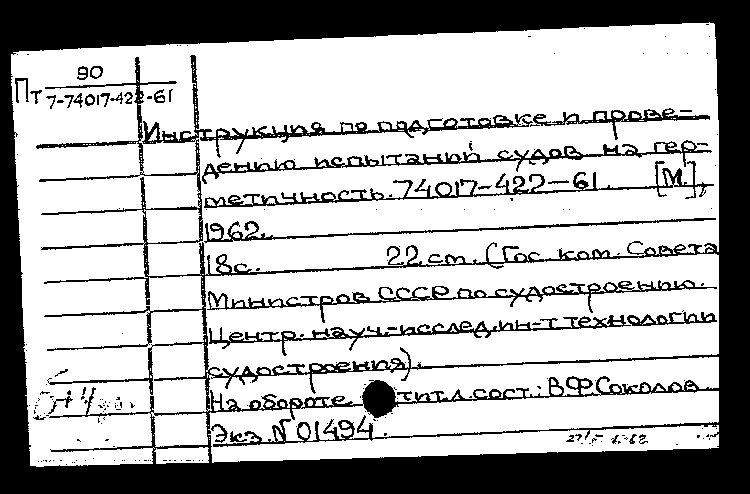 90
Пт 7-74017-422-61
Инструкция по подготовке и прове-
дению испытаний судов на гер-
метичность. 74017-422-61. [М.],
1962.
18с. 22 см. (Гос. ком. Совета
Министров СССР по судостроению.
Центр. науч.-исслед. ин-т технологии
судостроения).
На обороте тит. л. сост.: В.Ф. Соколов.
Экз. № 01494.